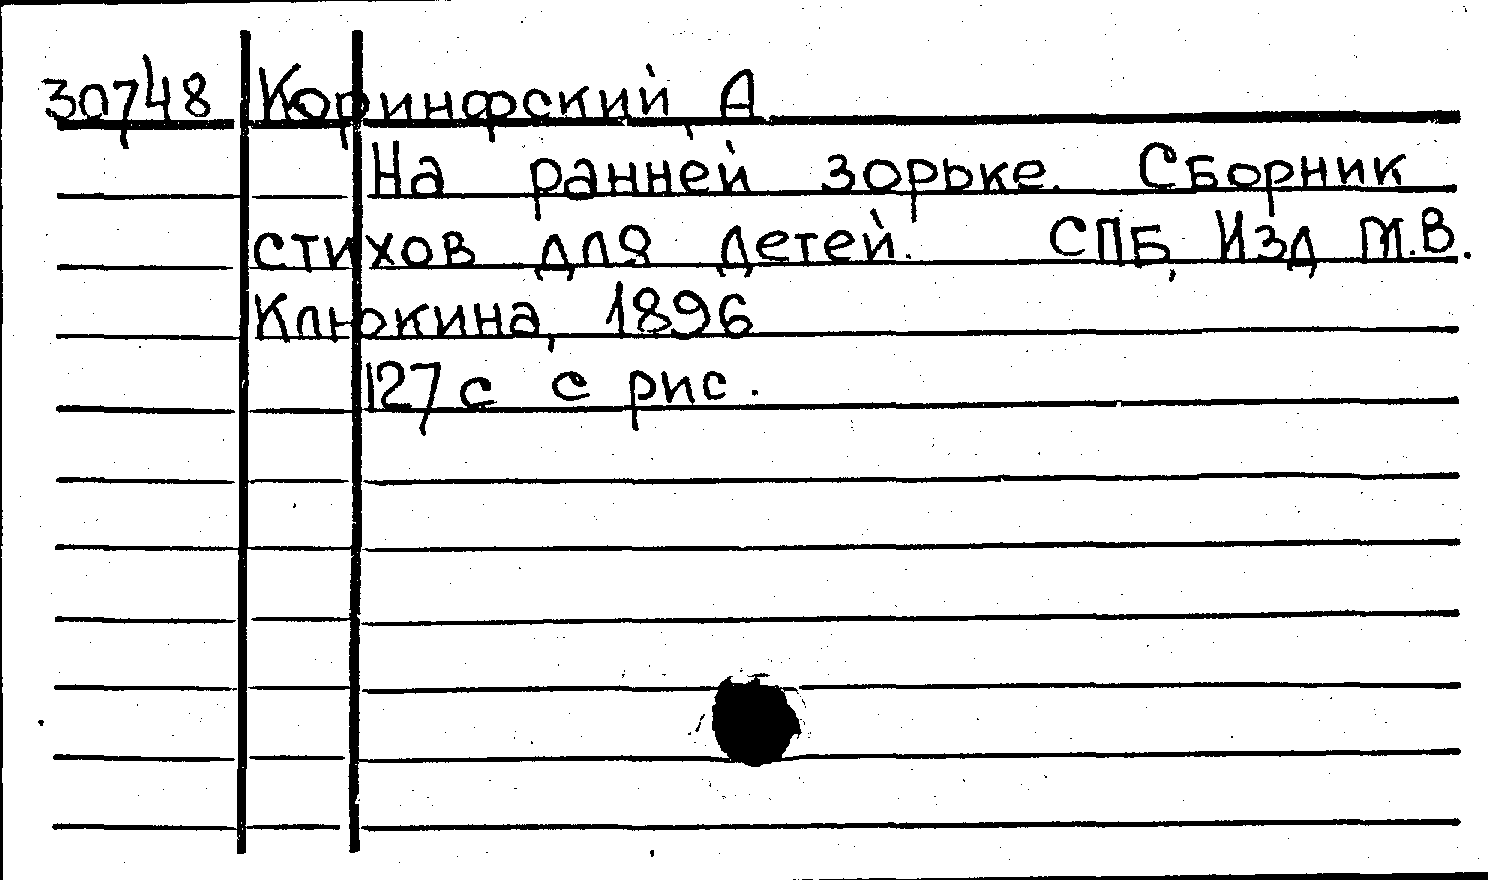 30748 Коринфский, А
На ранней зорьке. Сборник
стихов для детей. СПБ, Изд М.В.
Клюкина, 1896
127 с с рис.